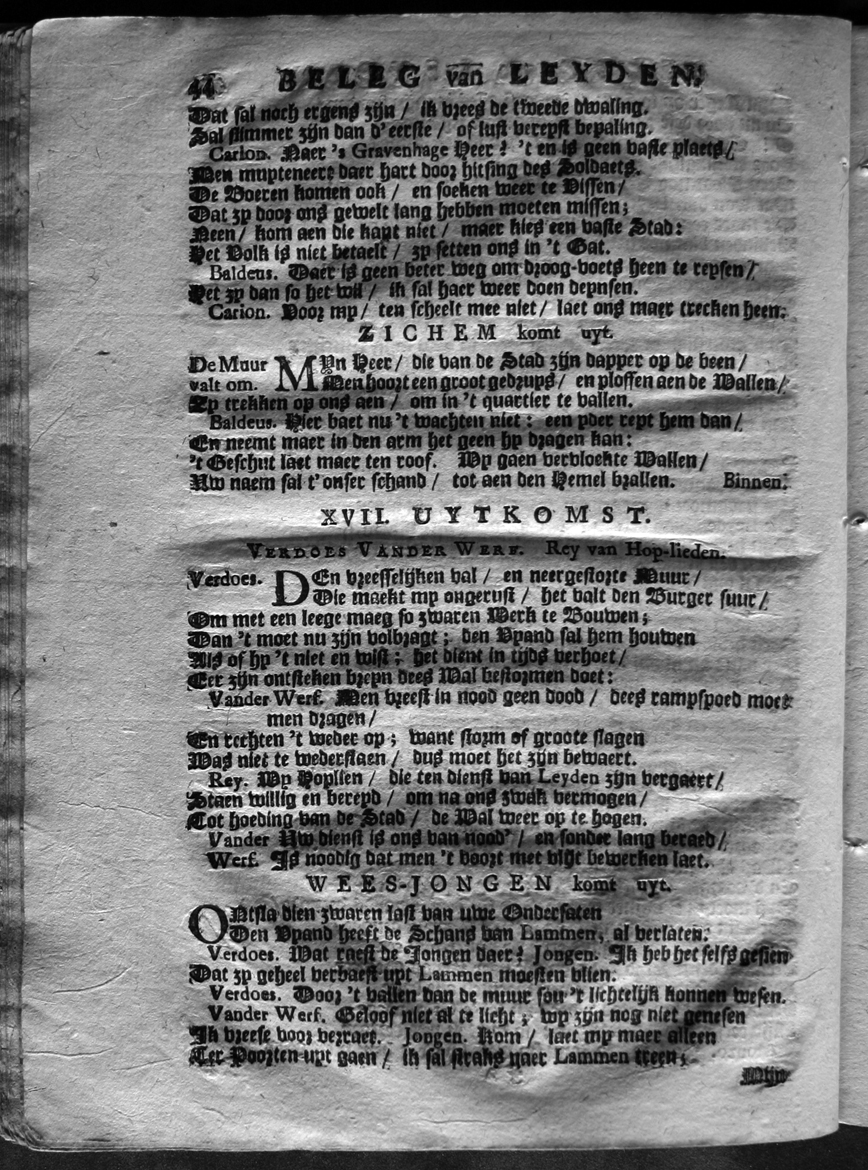 44 BELEG van LEYDEN.
Dat sal noch ergens zijn / ik vrees de tweede dwaling.
Sal slimmer zijn dan d'eerste / of lust verepst bepaling.
Carion. Naer 's Gravenhage Heer? 't en is geen vaste plaets /
Men muyteneert daer hart door hitsing des Soldaets.
De Boeren komen ook / en soeken weer te Vissen /
Dat zy door ons gewelt lang hebben moeten missen;
Neen / kom aen die kant niet / maer kies een vaste Stad:
Het Volk is niet betaelt / zy setten ons in 't Gat.
Baldeus. Daer is geen beter weg om droog-voets heen te reysen /
Het zy dan so het wil / ik sal haer weer doen deynsen.
Carion. Voor my / ten scheelt mee niet / laet ons maer trecken heen.
ZICHEM komt uyt.
De Muur valt om. MYn Heer / die van de Stad zijn dapper op de been /
Men hoort een groot gedruys / en ploffen aen de Wallen /
Zy trekken op ons aen / om in 't quartier te vallen.
Baldeus. Hier baet nu 't wachten niet: een yder rept hem dan /
En neemt maer in den arm het geen hy dragen kan:
't Geschut laet maer ten roof. Wy gaen vervloekte Wallen /
Uw naem sal t'onser schand / tot aen den Hemel brallen. Binnen.
XVII. UYTKOMST.
VERDOES VANDER WERF. Rey van Hop-lieden.
Verdoes. DEn vreesselijken val / en neergestorte Muur /
Die maekt my ongerust / het valt den Burger suur /
Om met een leege maeg so zwaren Werk te Bouwen;
Dan 't moet nu zijn volbragt; den Vyand sal hem houwen
Als of hy 't niet en wist; het dient in tijds verhoet /
Eer zijn ontsteken breyn dees Wal bestormen doet:
Vander Werf. Men vreest in nood geen dood / dees rampspoed moet
men dragen /
En rechten 't weder op; want storm of groote slagen
Was niet te wederstaen / dus moet het zijn bewaert.
Rey. Wy Hoplien / die ten dienst van Leyden zijn vergaert /
Staen willig en bereyd / om na ons zwak vermogen /
Tot hoeding van de Stad / de Wal weer op te hogen.
Vander Uw dienst is ons van nood' / en sonder lang beraed /
Werf. Is noodig dat men 't voort met vlijt bewerken laet.
WEES-JONGEN komt uyt.
ONtsla dien zwaren last van uwe Ondersaten
Den Vyand heeft de Schans van Lammen, al verlaten.
Verdoes. Wat raest de Jongen daer? Jongen. Ik heb het selfs gesien
Dat zy geheel verbaest uyt Lammen moesten vlien.
Verdoes. Door 't vallen van de muur sou 't lichtelijk konnen wesen.
Vander Werf. Geloof niet al te licht; wy zijn nog niet genesen
Ik vreese voor verraet. Jongen. Kom / laet my maer alleen
Ter Poorten uyt gaen / ik sal straks naer Lammen treen;
Mijn